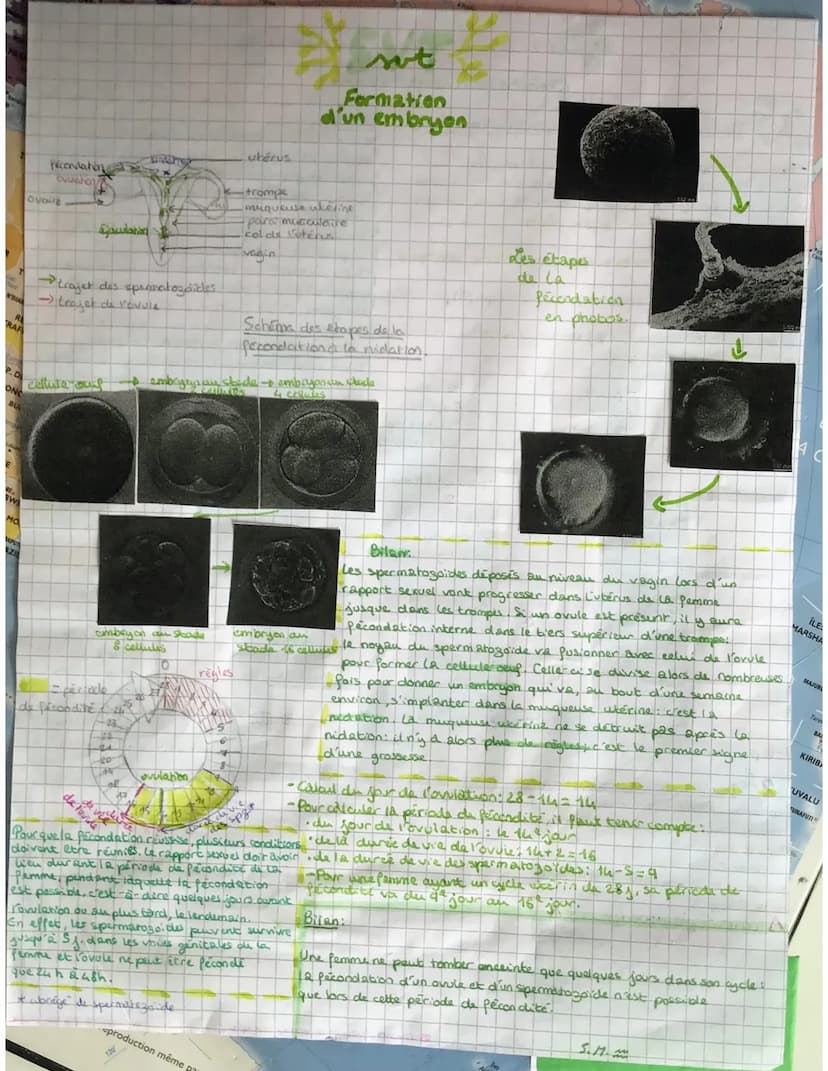 SVT
svt
Formation
d'un embryon
fécondation
ovulation
nidation
ovaire
éjaculation
utérus
trompe
muqueuse utérine
paroi musculaire
col de l'utérus
vagin
→ trajet des spermatozoïdes
→ trajet de l'ovule
Schéma des étapes de la
fécondation à la nidation.
Les étapes
de la
fécondation
en photos.
cellule-oeuf → embryon au stade → embryon au stade
2 cellules 4 cellules
embryon au stade
8 cellules
embryon au
stade 16 cellules
Bilan:
Les spermatozoïdes déposés au niveau du vagin lors d'un
rapport sexuel vont progresser dans l'utérus de la femme
jusque dans les trompes. Si un ovule est présent, il y aura
fécondation interne dans le tiers supérieur d'une trompe:
le noyau du spermatozoïde va fusionner avec celui de l'ovule
pour former la cellule-oeuf. Celle-ci se divise alors de nombreuses
fois pour donner un embryon qui va, au bout d'une semaine
environ, s'implanter dans la muqueuse utérine: c'est la
nidation. La muqueuse utérine ne se détruit pas après la
nidation: il n'y a alors plus de règles, c'est le premier signe
d'une grossesse
= période
de fécondité
0
règles
5
6
7
8
ovulation
durée de vie
des spz*
durée de vie
de l'ovule
Pour que la fécondation réussisse, plusieurs conditions
doivent etre réunies. Le rapport sexuel doit avoir
lieu durant la période de fécondité de la
femme, pendant laquelle la fécondation
est possible, c'est-à-dire quelques jours avant
l'ovulation ou au plus tard, le lendemain.
En effet, les spermatozoïdes peuvent survivre
jusqu'à 5 j. dans les voies génitales de la
femme et l'ovule ne peut être fécondé
que 24 h à 48h.
* abrégé de spermatozoïde
- Calcul du jour de l'ovulation: 28 - 14 = 14
- Pour calculer la période de fécondité, il faut tenir compte:
• du jour de l'ovulation: le 14e jour
• de la durée de vie de l'ovule: 14 + 2 = 16
• de la durée de vie des spermatozoïdes: 14 - 5 = 9
- Pour une femme ayant un cycle utérin de 28 j, sa période de
fécondité va du 9e jour au 16e jour.
Bilan:
Une femme ne peut tomber enceinte que quelques jours dans son cycle:
la fécondation d'un ovule et d'un spermatozoïde n'est possible
que lors de cette période de fécondité.
S.M.
production même pa
ÎLES
MARSHA
KIRIBA
TUVALU